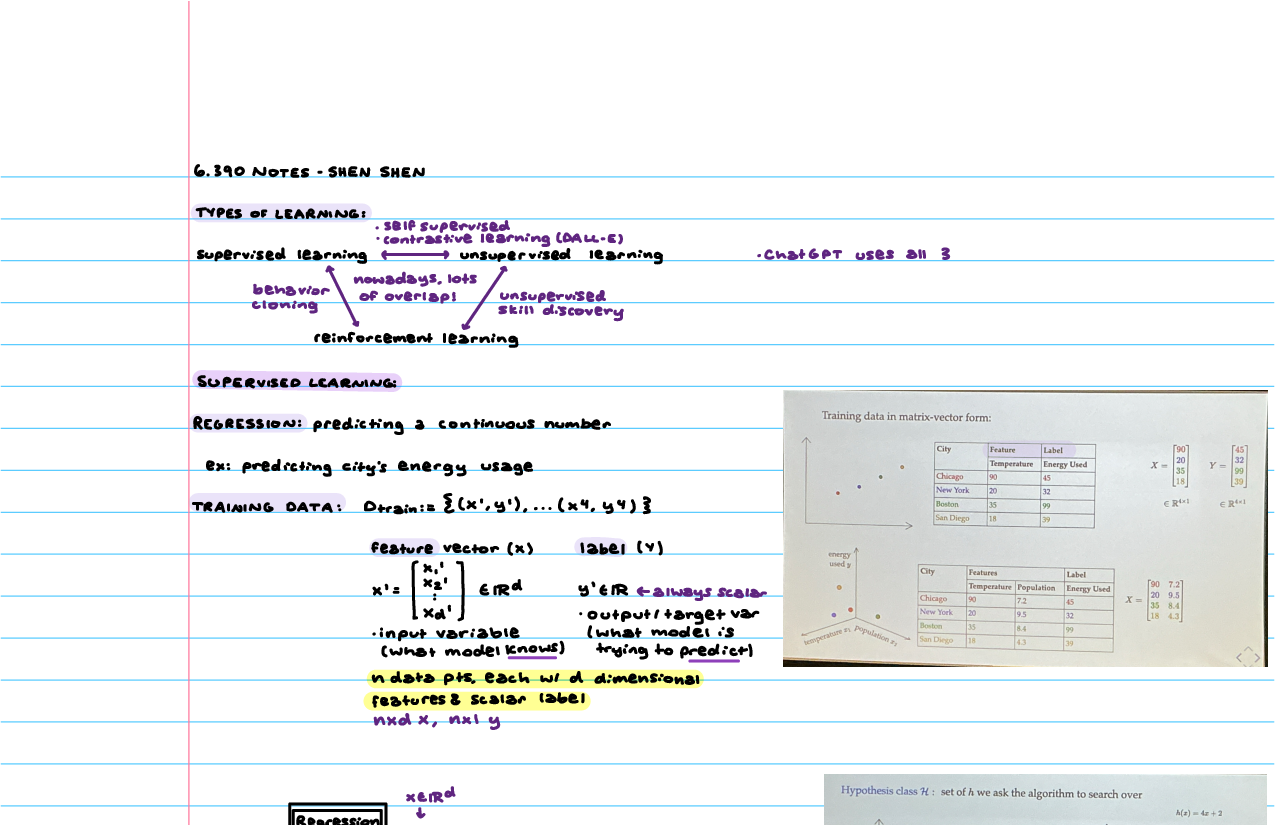 6.390 NOTES - SHEN SHEN
TYPES OF LEARNING:
· self supervised
· contrastive learning (DALL-E)
supervised learning
unsupervised learning
· ChatGPT uses all 3
behavior
cloning
nowadays, lots
of overlap!
unsupervised
skill discovery
reinforcement learning
SUPERVISED LEARNING:
REGRESSION: predicting a continuous number
ex: predicting city's energy usage
TRAINING DATA: Dtrain:= {(x¹, y¹), ... (x⁴, y⁴)}
feature vector (x)
x¹ = [x₁¹ x₂¹ ⋮ xd¹] ∈ ℝᵈ
· input variable
(what model knows)
label (y)
y¹ ∈ ℝ ← always scalar
· output/target var
(what model is
trying to predict)
n data pts, each w/ d dimensional
features & scalar label
nxd x, nx1 y
x∈ℝᵈ
↓
Regression
Training data in matrix-vector form:
City Feature Label
Temperature Energy Used
Chicago 90 45
New York 20 32
Boston 35 99
San Diego 18 39
X = [90 20 35 18] ∈ ℝ⁴ˣ¹
Y = [45 32 99 39] ∈ ℝ⁴ˣ¹
energy
used y
temperature x₁ population x₂
City Features Label
Temperature Population Energy Used
Chicago 90 7.2 45
New York 20 9.5 32
Boston 35 8.4 99
San Diego 18 4.3 39
X =
90 7.2
20 9.5
35 8.4
18 4.3
Hypothesis class ℋ : set of h we ask the algorithm to search over
h(x) = 4x + 2